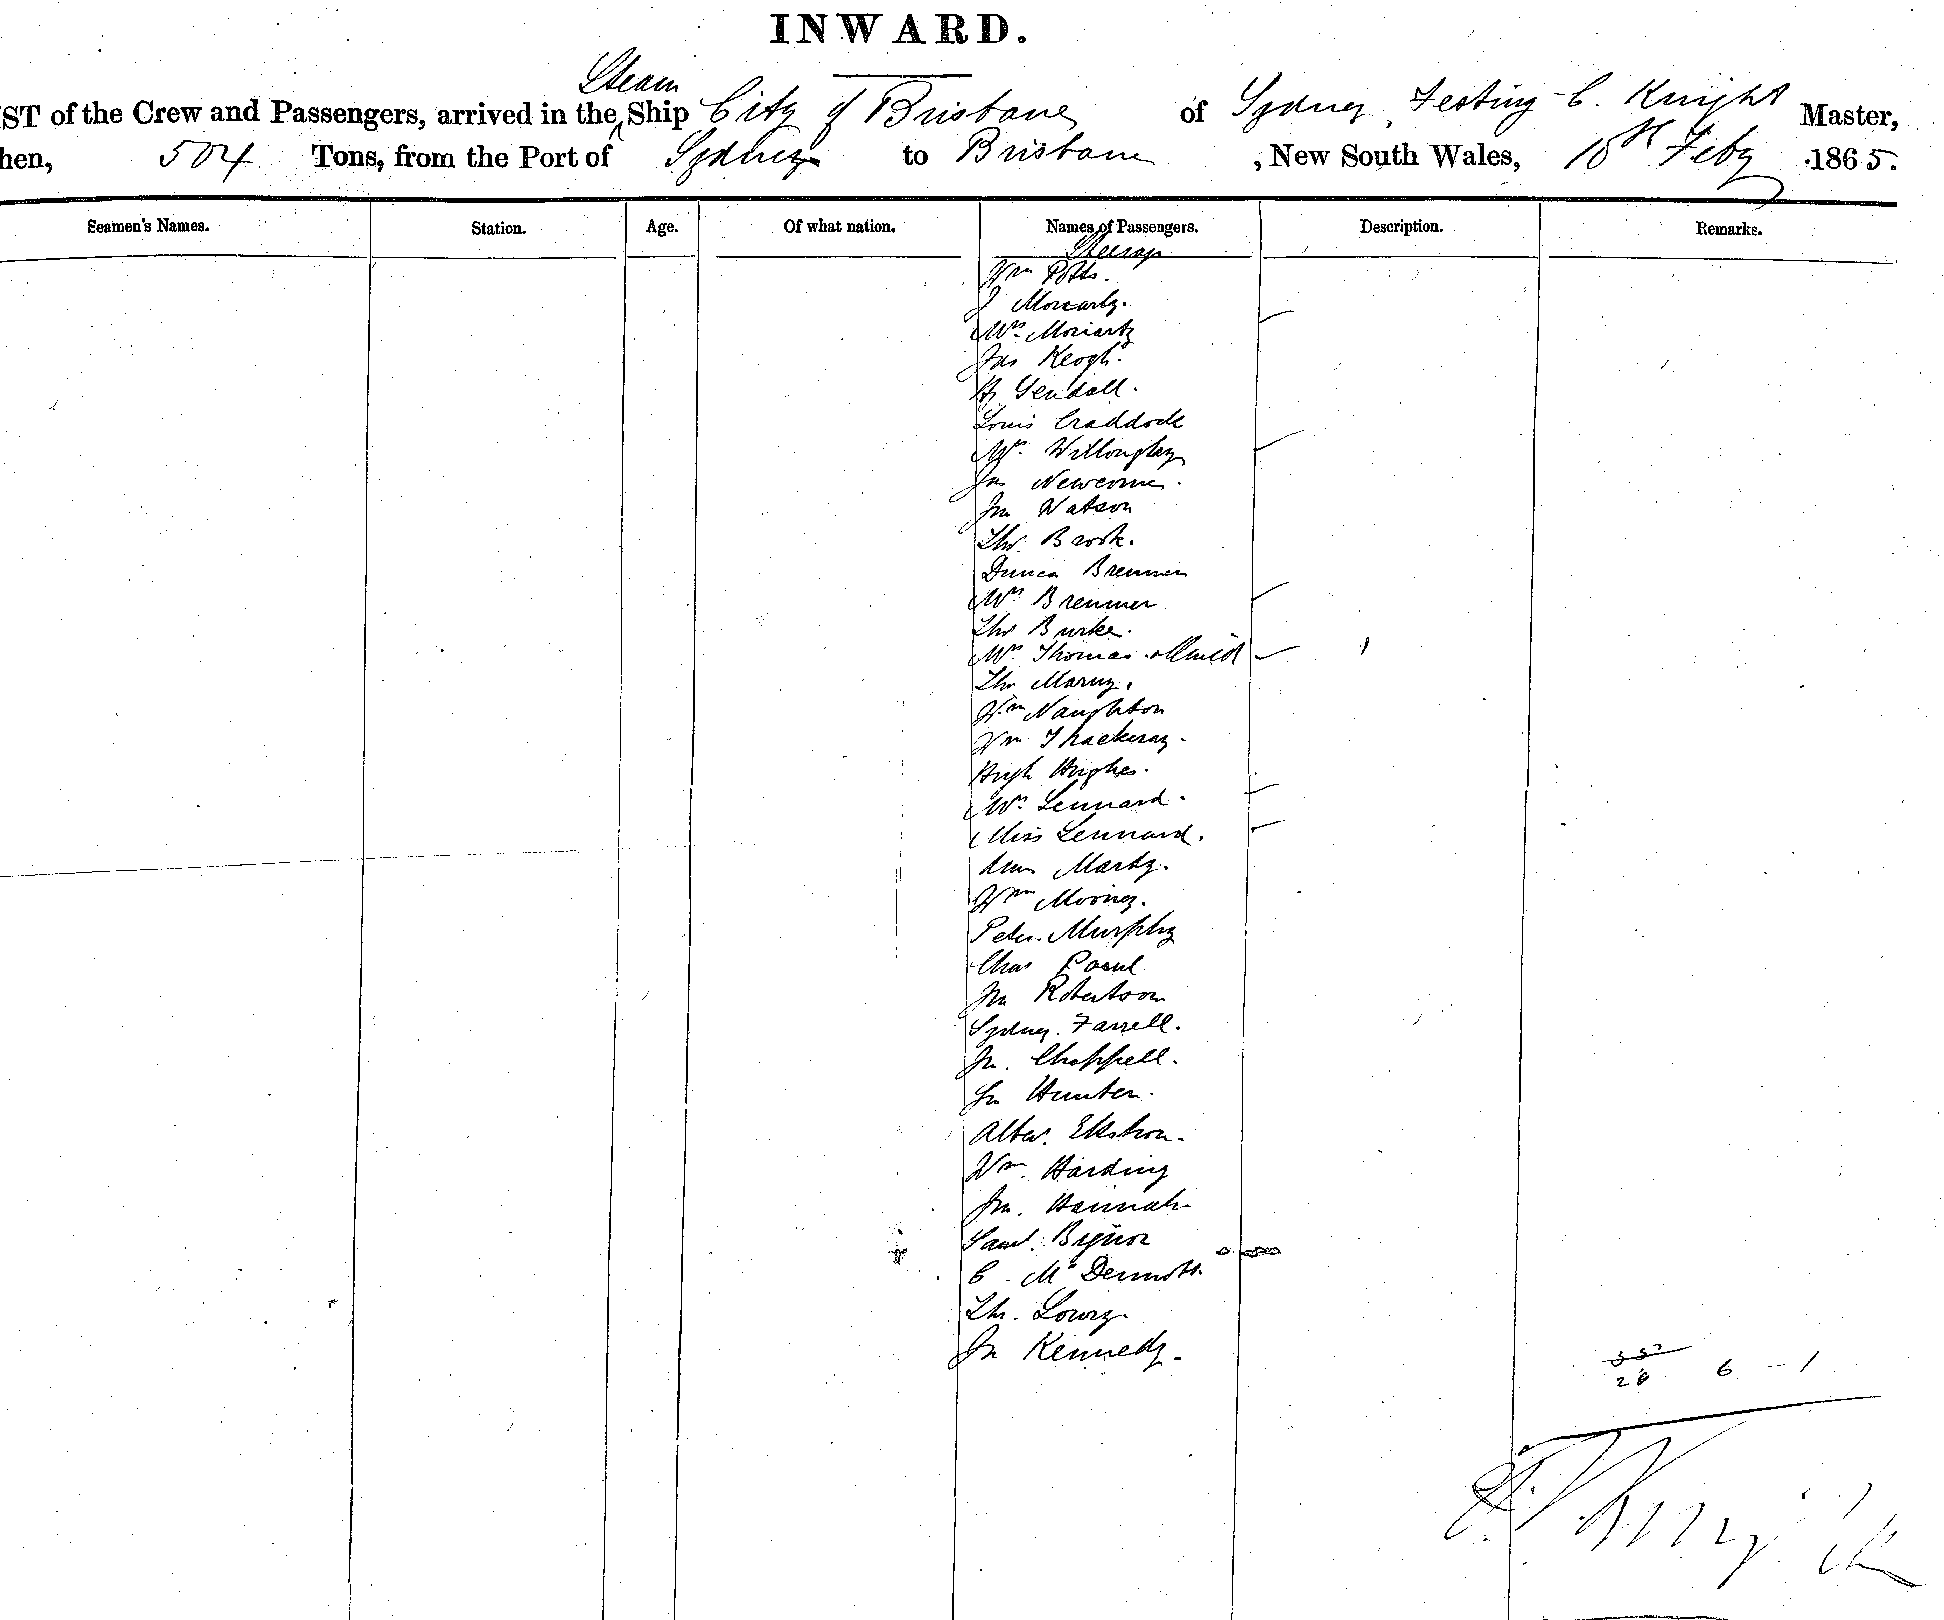 INWARD.
Steam
ST of the Crew and Passengers, arrived in the Ship City of Brisbane of Sydney, Festing C. Knight Master,
hen, 504 Tons, from the Port of Sydney to Brisbane, New South Wales, 10th Feby 1865.
Seamen's Names. Station. Age. Of what nation. Names of Passengers. Description. Remarks.
Steerage
Wm Potts.
J Moriarty.
Mrs Moriarty
Jas Keogh.
H Gendall.
Louis Craddock
Mrs Willoughby
Jas Newcome.
Jn Watson
Thos Brook.
Duncan Bremner
Mrs Bremner
Thos Burke.
Mrs Thomas & Child 1
Thos
Wm Naughton
Wm Thackeray.
Hugh Hughes.
Mrs Lennard.
Miss Lennard.
Marty.
Wm Mooney.
Peter Murphy
Chas
Jn Robertson
Sydney Farrell.
Jn. Chappell.
Jn Hunter.
Ekstrom.
Wm Harding
Jn. Hannah
Saml. Bignor
C McDermott.
Thos. Lowry.
Jn Kennedy.
28 6 - 1